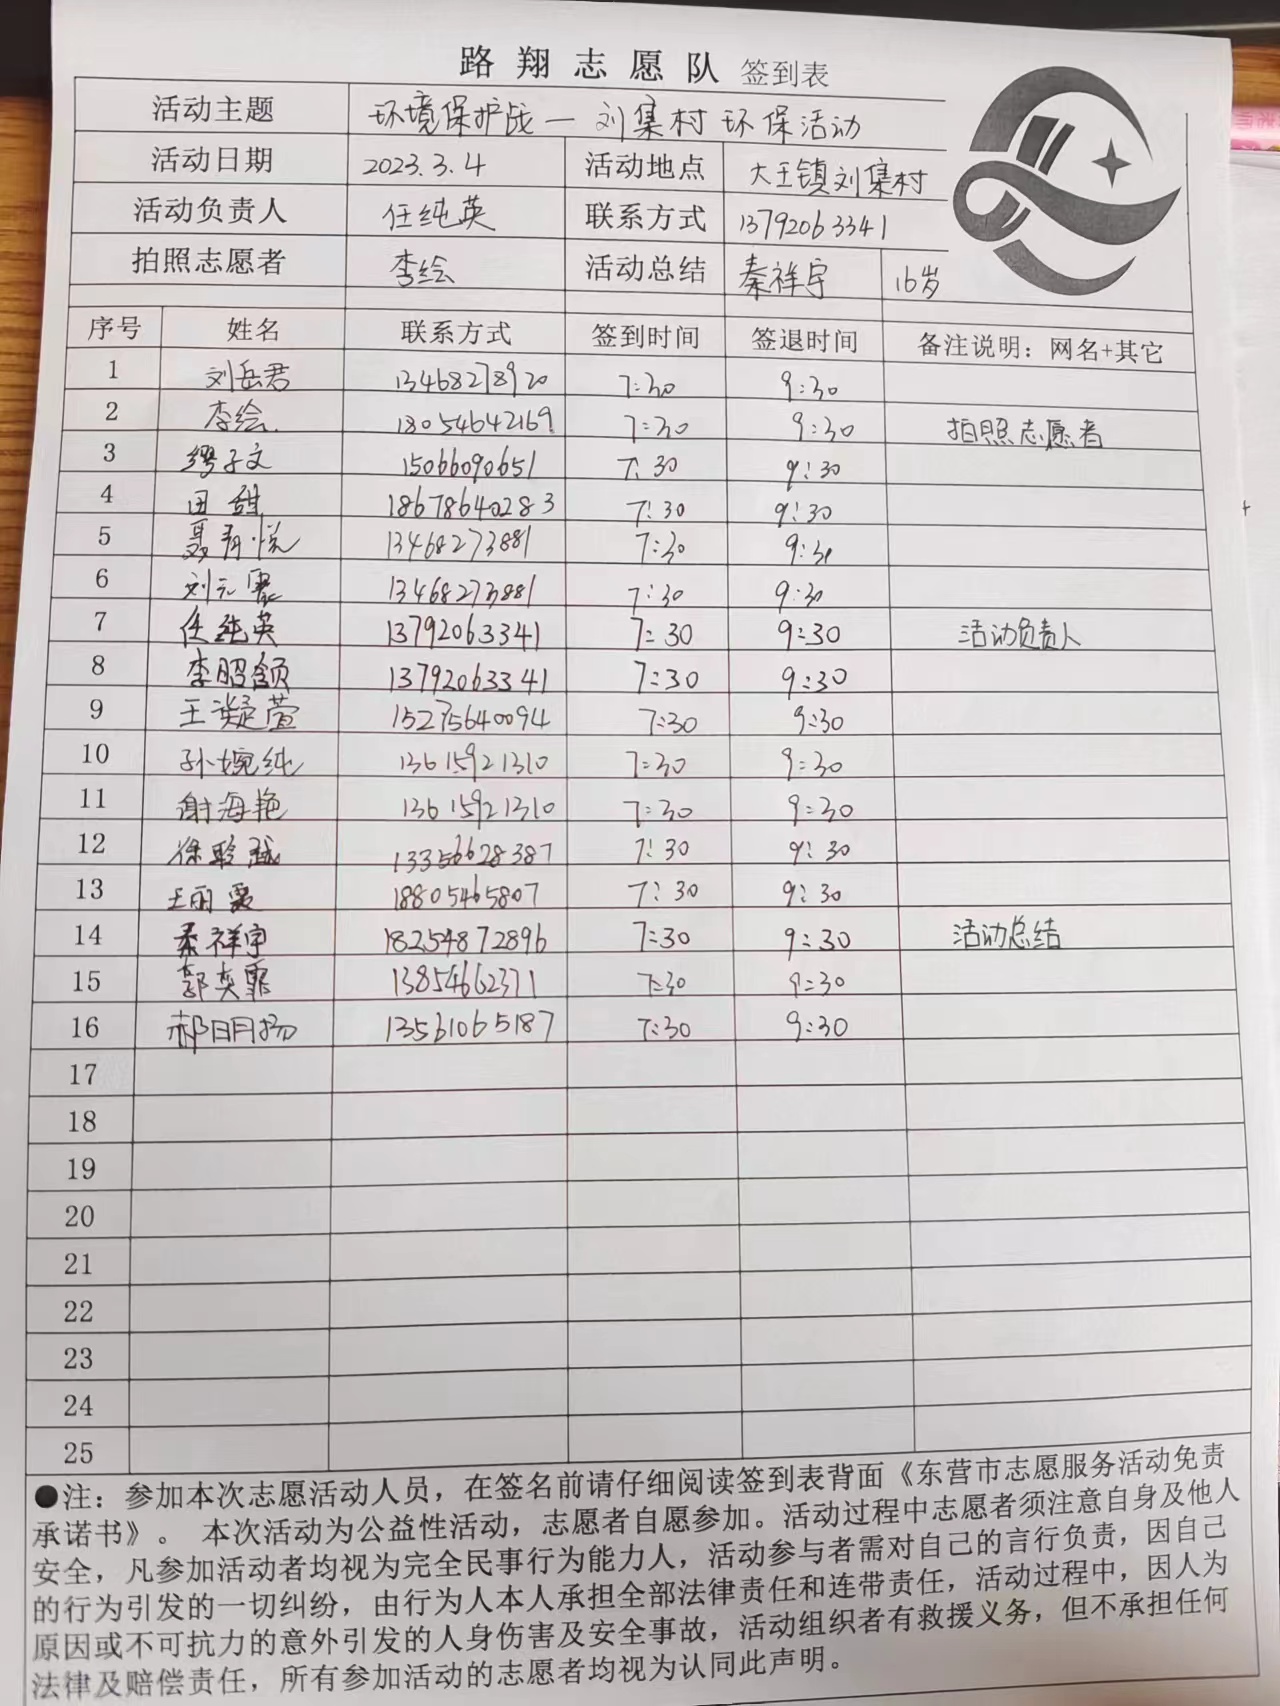 路翔志愿队 签到表
活动主题 环境保护战一刘集村环保活动
活动日期 2023.3.4 活动地点 大王镇刘集村
活动负责人 任纯英 联系方式 13792063341
拍照志愿者 李绘 活动总结 秦祥宇 16岁
序号 姓名 联系方式 签到时间 签退时间 备注说明：网名+其它
1 刘岳君 13468278920 7:30 9:30
2 李绘 18054642169 7:30 9:30 拍照志愿者
3 缪子文 15066090651 7:30 9:30
4 田甜 18678640283 7:30 9:30
5 13468273881 7:30 9:30
6 刘元 13468273881 7:30 9:30
7 任纯英 13792063341 7:30 9:30 活动负责人
8 李昭颔 13792063341 7:30 9:30
9 王凝萱 15275640094 7:30 9:30
10 孙婉纯 13615921310 7:30 9:30
11 谢海艳 13615921310 7:30 9:30
12 徐 13356628387 7:30 9:30
13 王丽霞 18805465807 7:30 9:30
14 秦祥宇 18254872896 7:30 9:30 活动总结
15 郭奕霏 13854662371 7:30 9:30
16 郝明扬 13561065187 7:30 9:30
17
18
19
20
21
22
23
24
25
●注：参加本次志愿活动人员，在签名前请仔细阅读签到表背面《东营市志愿服务活动免责
承诺书》。 本次活动为公益性活动，志愿者自愿参加。活动过程中志愿者须注意自身及他人
安全，凡参加活动者均视为完全民事行为能力人，活动参与者需对自己的言行负责，因自己
的行为引发的一切纠纷，由行为人本人承担全部法律责任和连带责任，活动过程中，因人为
原因或不可抗力的意外引发的人身伤害及安全事故，活动组织者有救援义务，但不承担任何
法律及赔偿责任，所有参加活动的志愿者均视为认同此声明。